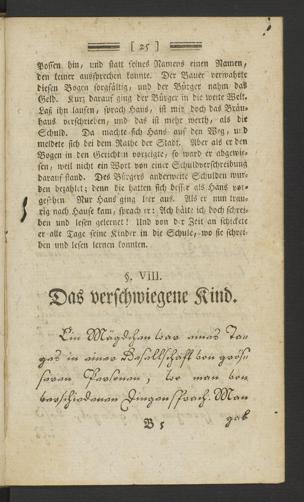 [ 25 ]
Possen hin, und statt seines Namens einen Namen,
den keiner aussprechen konnte. Der Bauer verwahrte
diesen Bogen sorgfältig, und der Bürger nahm das
Geld. Kurz darauf ging der Bürger in die weite Welt.
Laß ihn laufen, sprach Hans, ist mir doch das Bräu-
haus verschrieben, und das ist mehr werth, als die
Schuld. Da machte sich Hans auf den Weg, und
meldete sich bei dem Rathe der Stadt. Aber als er den
Bogen in den Gerichten vorzeigte, so ward er abgewie-
sen, weil nicht ein Wort von einer Schuldverschreibung
darauf stand. Des Bürgers anderweite Schulden wur-
den bezahlt; denn die hatten sich besser als Hans vor-
gesehen. Nur Hans ging leer aus. Als er nun trau-
rig nach Hause kam, sprach er: Ach hätte ich doch schrei-
ben und lesen gelernet! Und von der Zeit an schickte
er alle Tage seine Kinder in die Schule, wo sie schrei-
ben und lesen lernen konnten.
§. VIII.
Das verschwiegene Kind.
Ein Mägdchen war eines Ta-
ges in einer Gesellschaft von größ-
seren Personen, wo man von
verschiedenen Dingen sprach. Man
B 5 gab